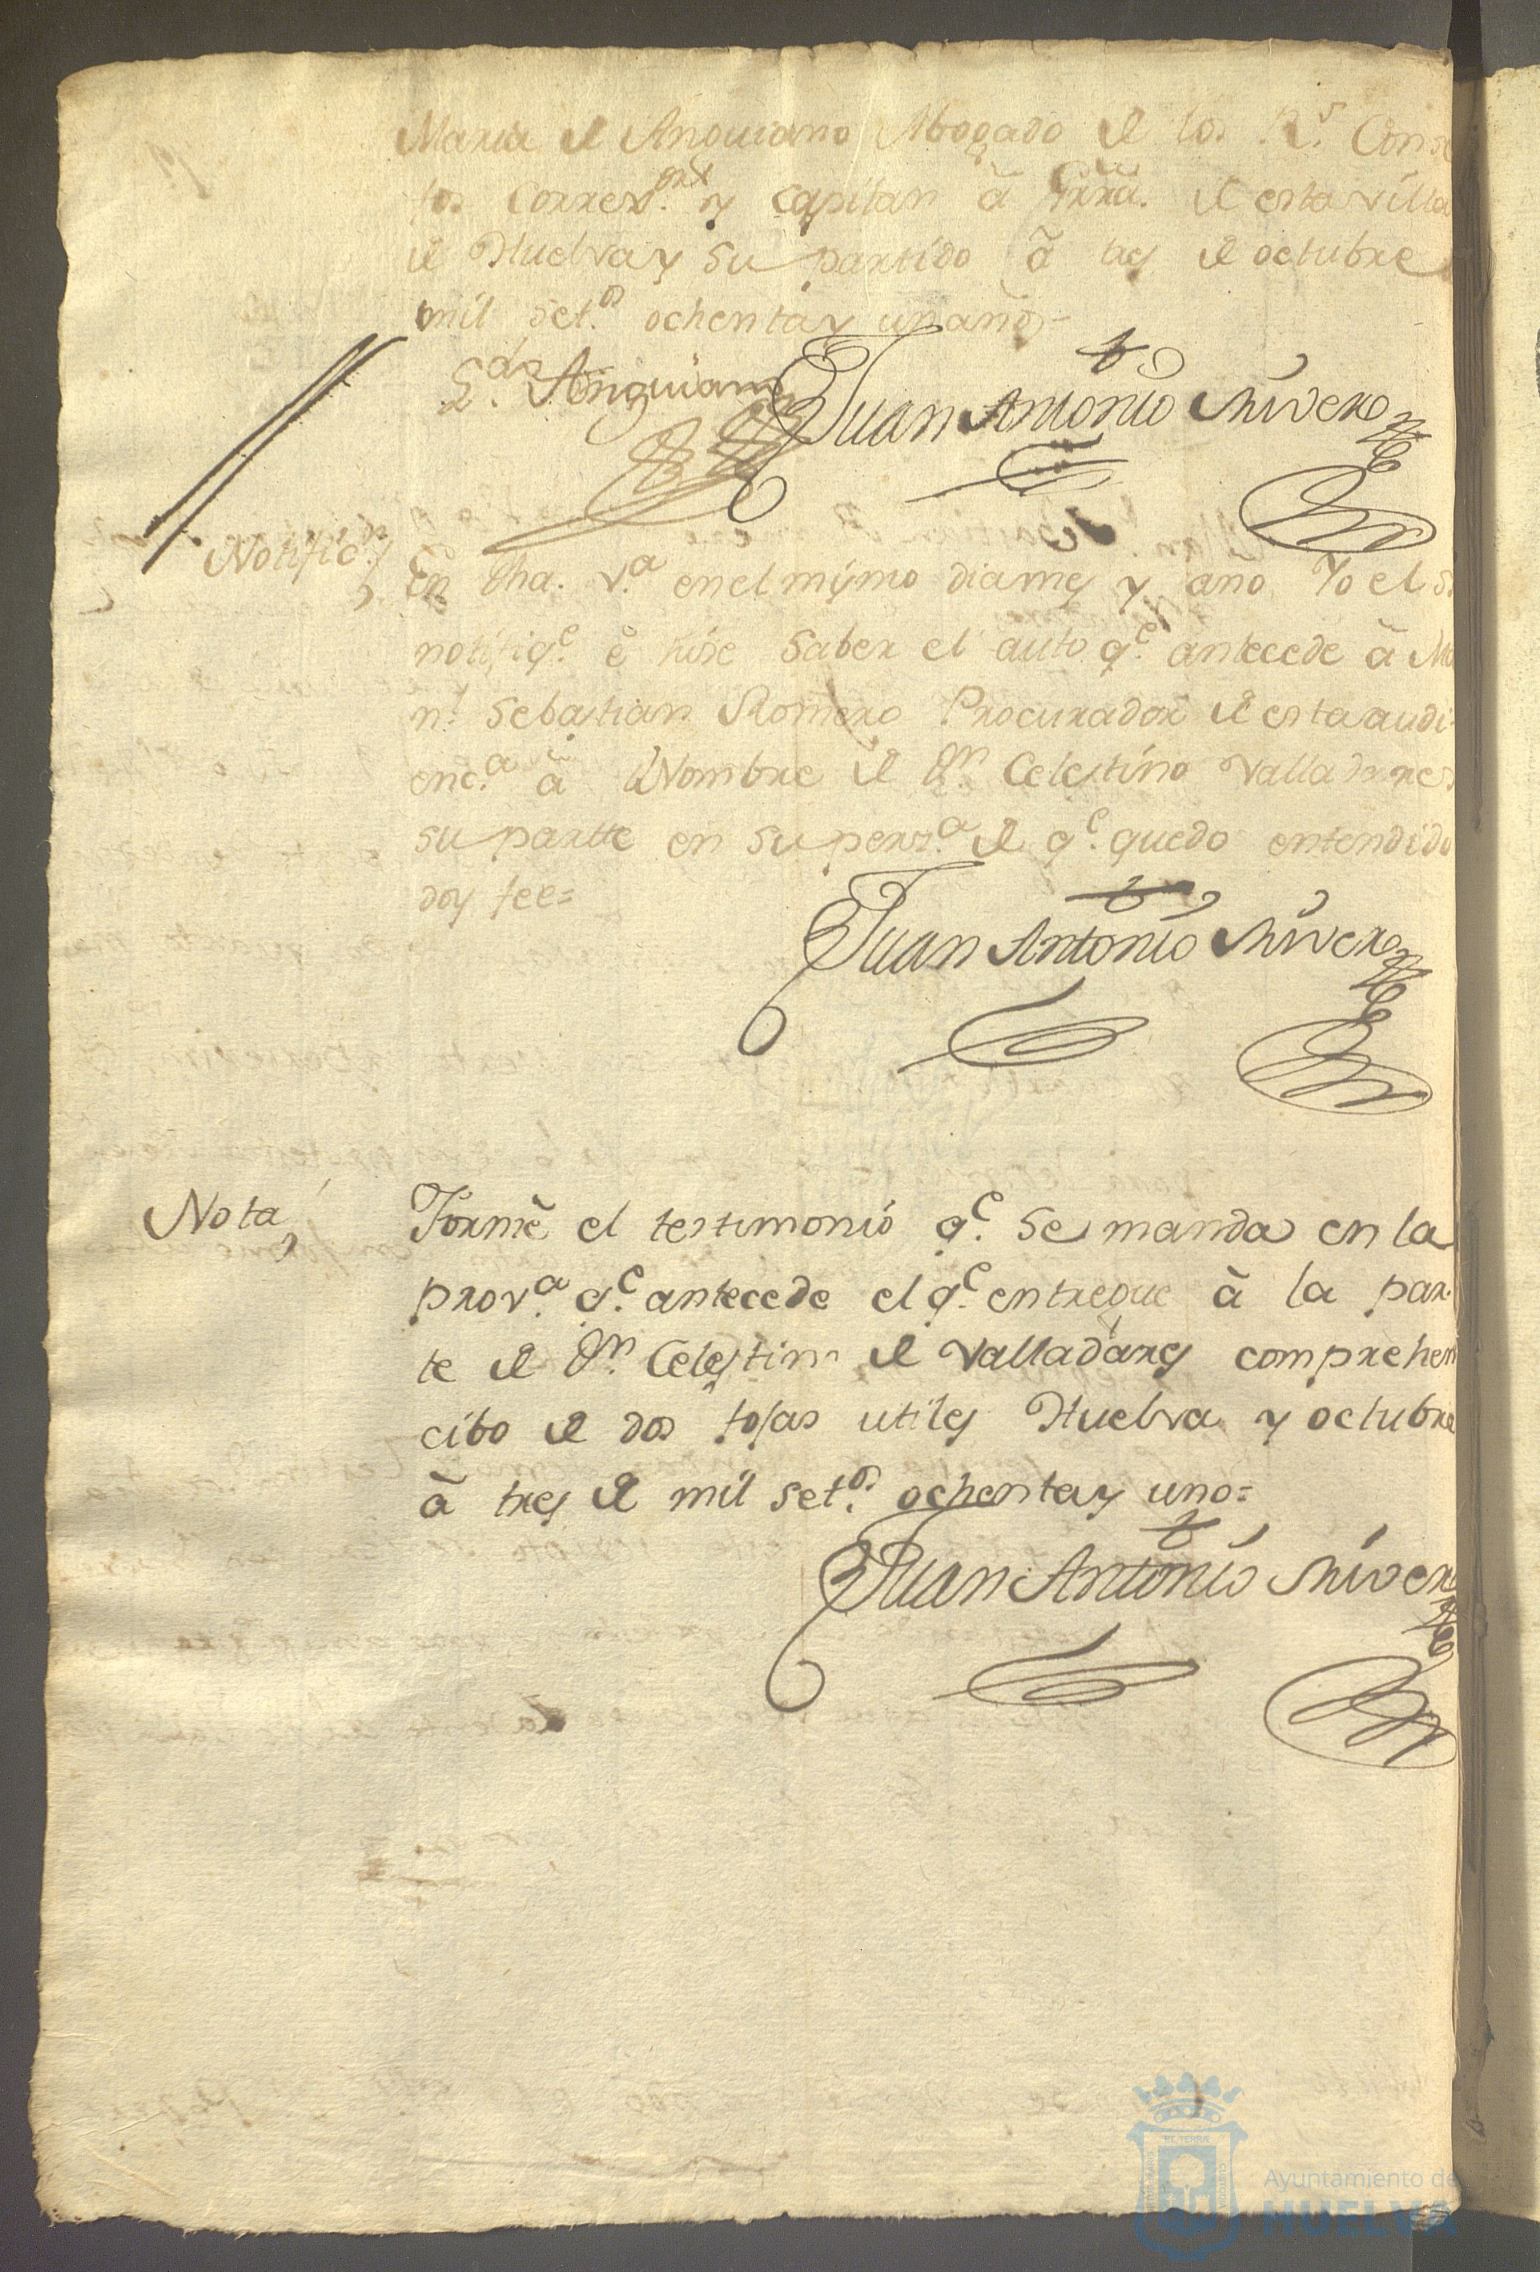 Maria de Anguiano Abogado de los R.s Conse
jos Correx.or y capitan à Grrâ. de esta villa
de Huelva y su partido à tres de octubre
mil set.s ochenta y un año=
L.do Anguiano
Juan Antonio Rivero
Notific.n
En dha. v.a en el mismo dia mes y año Yo el s.
notifiq.e è hise saber el auto q.e antecede à Ma
n.l Sebastian Romero Procurador de esta audi
enc.a à Nombre de D.n Celestino Valladares
su partte en su perz.a de q.e quedo entendido
doy fee=
Juan Antonio Rivero
Nota
Formè el testimonio q.e se manda en la
prov.a q.e antecede el q.e entregue à la par
te de D.n Celestin de Valladares comprehen
cibo de dos fojas utiles Huelva y octubre
à tres de mil set.s ochenta y uno=
Juan Antonio Rivero
Ayuntamiento de
HUELVA